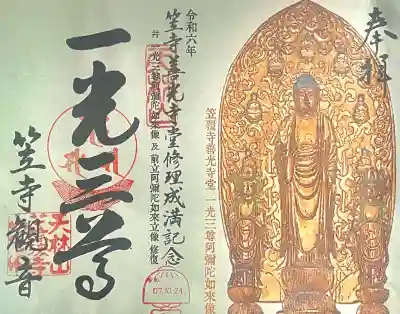 奉拝
笠覆寺善光寺堂 一光三尊阿彌陀如来像
令和六年
笠寺善光寺堂修理成満記念
并 一光三尊阿彌陀如来像 及 前立阿彌陀如来立像 修復
07.10.24
一光三尊
笠寺観音
天林山